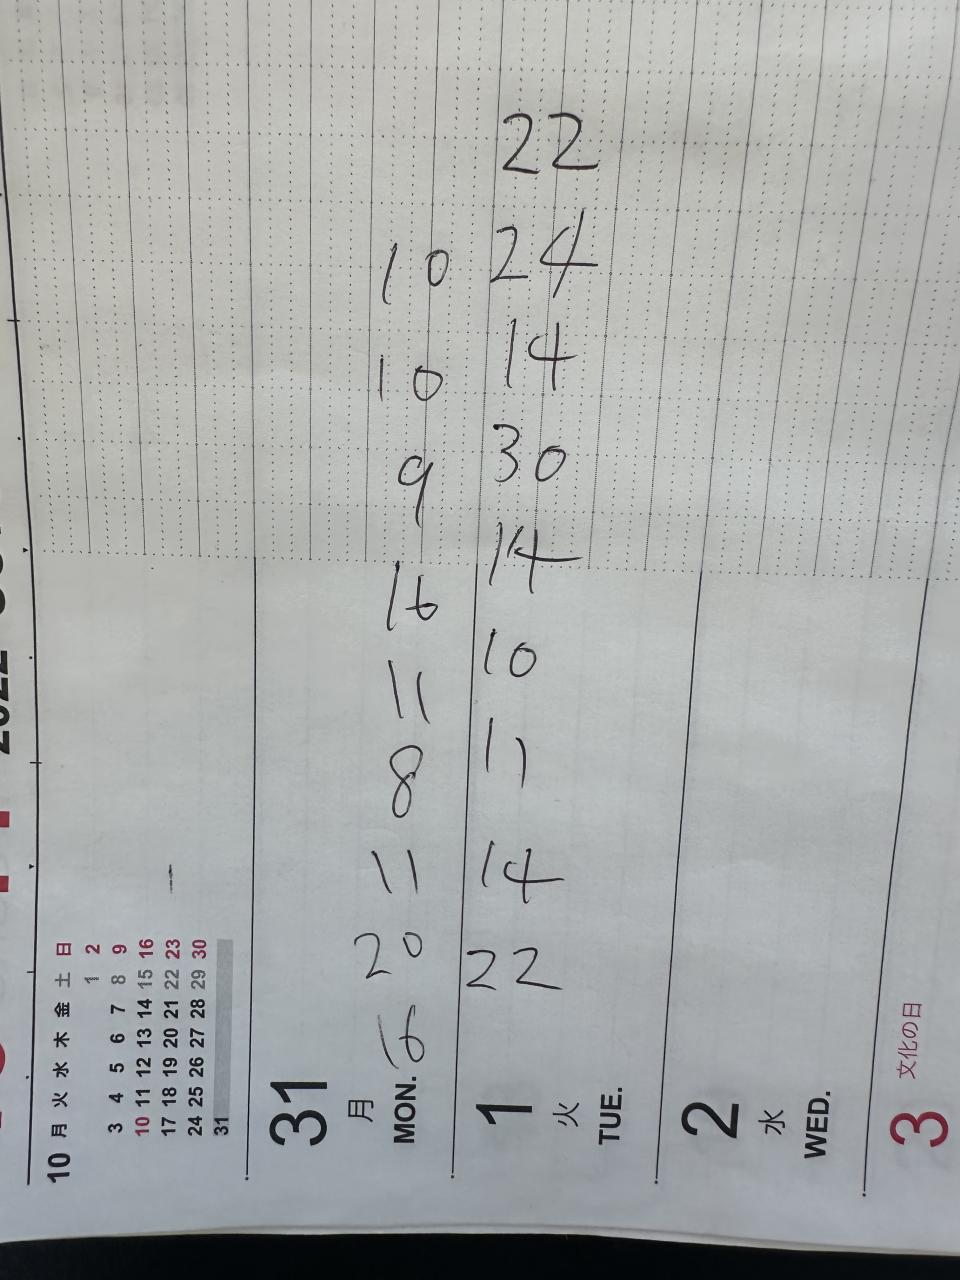 10 月 火 水 木 金 土 日
1 2
3 4 5 6 7 8 9
10 11 12 13 14 15 16
17 18 19 20 21 22 23
24 25 26 27 28 29 30
31
31
月
MON.
10
10
9
16
11
8
11
20
1
火
TUE.
22
24
14
30
14
10
11
14
22
2
水
WED.
3
文化の日